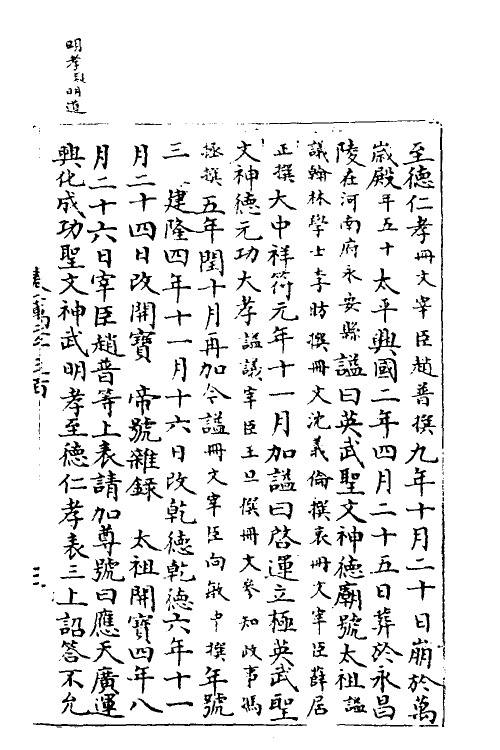 明孝上明道
至德仁孝冊文宰臣趙普撰九年十月二十日崩於萬
歲殿年五十太平興國二年四月二十五日葬於永昌
陵在河南府永安縣諡曰英武聖文神德廟號太祖諡
議翰林學士李昉撰冊文沈義倫撰哀冊文宰臣薛居
正撰大中祥符元年十一月加諡曰啓運立極英武聖
文神德元功大孝諡議宰臣王旦撰冊文參知政事馮
拯撰五年閏十月再加今諡冊文宰臣向敏中撰年號
三 建隆四年十一月十六日改乾德乾德六年十一
月二十四日改開寶 帝號雜錄 太祖開寶四年八
月二十六日宰臣趙普等上表請加尊號曰應天廣運
興化成功聖文神武明孝至德仁孝表三上詔答不允
三